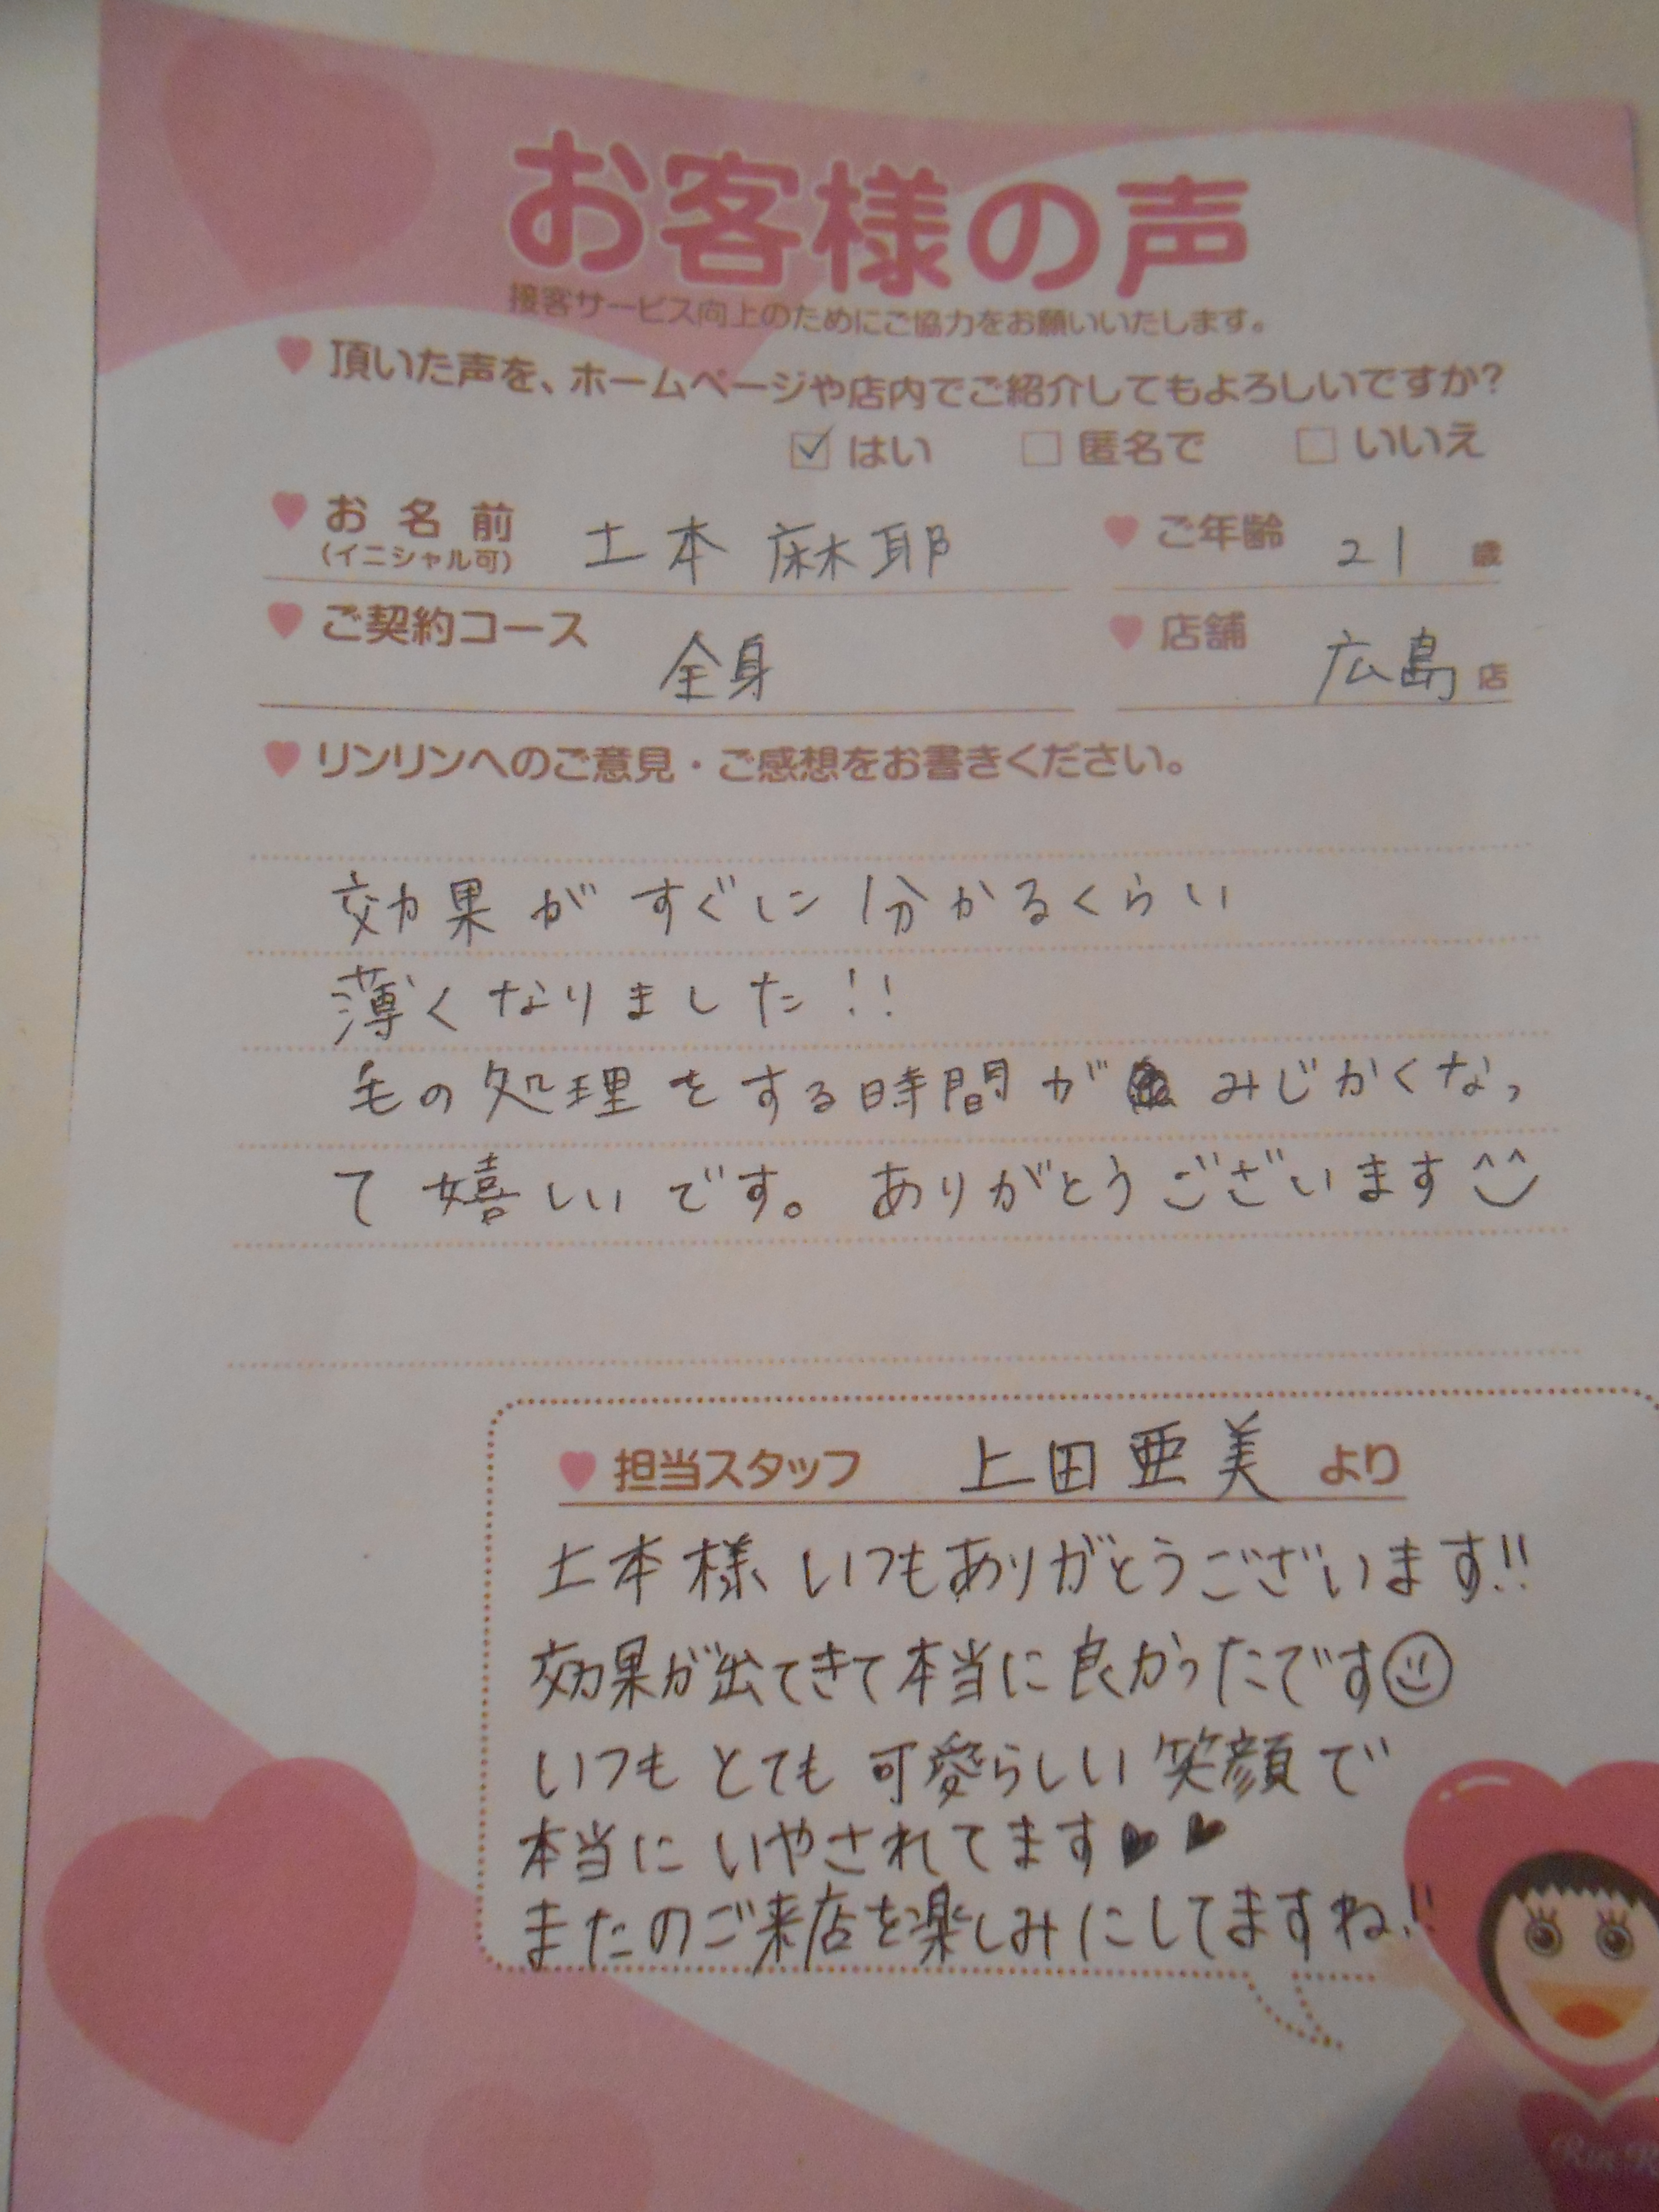 お客様の声
接客サービス向上のためにご協力をお願いいたします。
頂いた声を、ホームページや店内でご紹介してもよろしいですか?
はい 匿名で いいえ
お名前 土本 麻耶 ご年齢 21 歳
(イニシャル可)
ご契約コース 全身 店舗 広島 店
リンリンへのご意見・ご感想をお書きください。
効果がすぐに分かるくらい
薄くなりました!!
毛の処理をする時間が みじかくなっ
て嬉しいです。ありがとうございます
担当スタッフ 上田亜美 より
土本様 いつもありがとうございます!!
効果が出てきて本当に良かったです
いつもとても可愛らしい笑顔で
本当にいやされてます♥♥
またのご来店を楽しみにしてますね!!
Rin